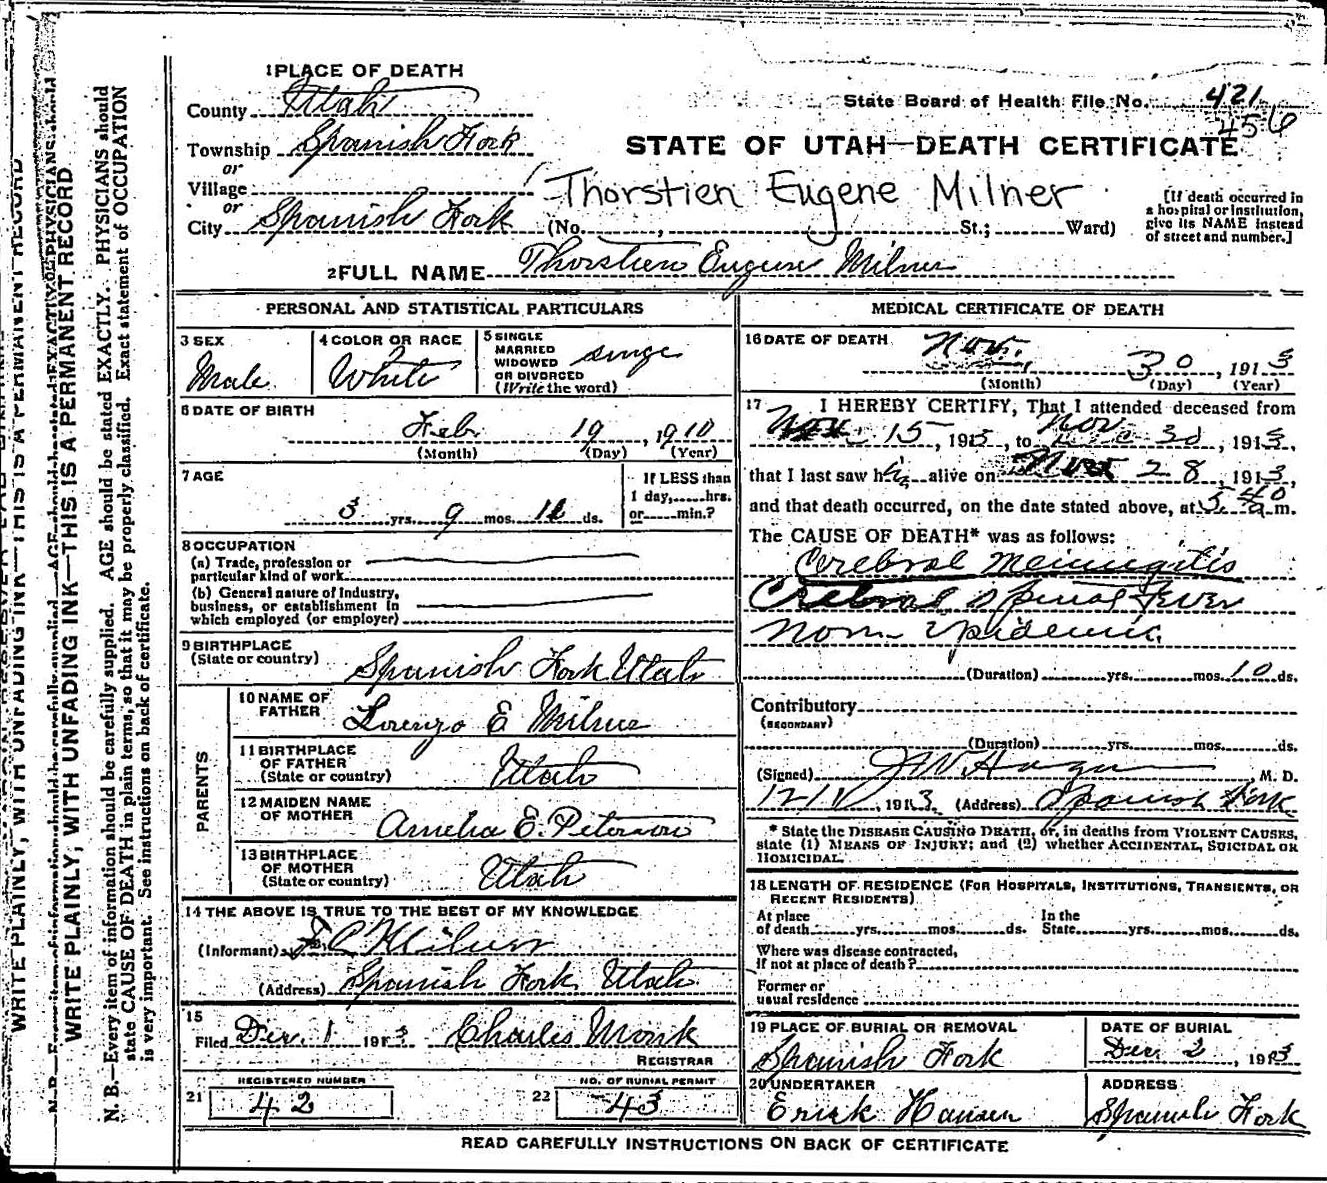 1 PLACE OF DEATH
County Utah
State Board of Health File No. 421
456
Township Spanish Fork
or
Village
or
City Spanish Fork
STATE OF UTAH—DEATH CERTIFICATE
Thorstien Eugene Milner
(No. , St.; Ward)
[If death occurred in
a hospital or institution,
give its NAME instead
of street and number.]
2 FULL NAME Thorstien Eugene Milner
PERSONAL AND STATISTICAL PARTICULARS
3 SEX
Male
4 COLOR OR RACE
White
5 SINGLE
MARRIED
WIDOWED
OR DIVORCED
(Write the word)
6 DATE OF BIRTH
Feb 19, 1910
(Month) (Day) (Year)
7 AGE
3 yrs. 9 mos. 11 ds.
If LESS than
1 day, hrs.
or min.?
8 OCCUPATION
(a) Trade, profession or
particular kind of work
(b) General nature of Industry,
business, or establishment in
which employed (or employer)
9 BIRTHPLACE
(State or country) Spanish Fork Utah
PARENTS
10 NAME OF
FATHER Lorenzo E Milner
11 BIRTHPLACE
OF FATHER
(State or country) Utah
12 MAIDEN NAME
OF MOTHER Amelia E. Peterson
13 BIRTHPLACE
OF MOTHER
(State or country) Utah
14 THE ABOVE IS TRUE TO THE BEST OF MY KNOWLEDGE
(Informant) Milner
(Address) Spanish Fork Utah
15
Filed Dec. 1 1913 Charles Monk
REGISTRAR
21 REGISTERED NUMBER
42
22 NO. OF BURIAL PERMIT
43
MEDICAL CERTIFICATE OF DEATH
16 DATE OF DEATH Nov. 30, 1913
(Month) (Day) (Year)
17 I HEREBY CERTIFY, That I attended deceased from
Nov. 15, 1913, to Nov. 30, 1913,
that I last saw him alive on Nov 28, 1913,
and that death occurred, on the date stated above, at 5 40 a m.
The CAUSE OF DEATH* was as follows:
Cerebral Meningitis
Cerebral Spinal Fever
Non Epidemic
(Duration) yrs. mos. 10 ds.
Contributory
(SECONDARY)
(Duration) yrs. mos. ds.
(Signed) J W Hagan, M. D.
12/1, 1913 (Address) Spanish Fork
* State the DISEASE CAUSING DEATH, or, in deaths from VIOLENT CAUSES,
state (1) MEANS OF INJURY; and (2) whether ACCIDENTAL, SUICIDAL OR
HOMICIDAL.
18 LENGTH OF RESIDENCE (FOR HOSPITALS, INSTITUTIONS, TRANSIENTS, OR
RECENT RESIDENTS)
At place
of death yrs. mos. ds.
In the
State yrs. mos. ds.
Where was disease contracted,
If not at place of death?
Former or
usual residence
19 PLACE OF BURIAL OR REMOVAL
Spanish Fork
DATE OF BURIAL
Dec. 2, 1913
20 UNDERTAKER
Erick Hansen
ADDRESS
Spanish Fork
READ CAREFULLY INSTRUCTIONS ON BACK OF CERTIFICATE
WRITE PLAINLY, WITH UNFADING INK—THIS IS A PERMANENT RECORD
N. B.—Every item of information should be carefully supplied. AGE should be stated EXACTLY. PHYSICIANS should
state CAUSE OF DEATH in plain terms, so that it may be properly classified. Exact statement of OCCUPATION
is very important. See instructions on back of certificate.